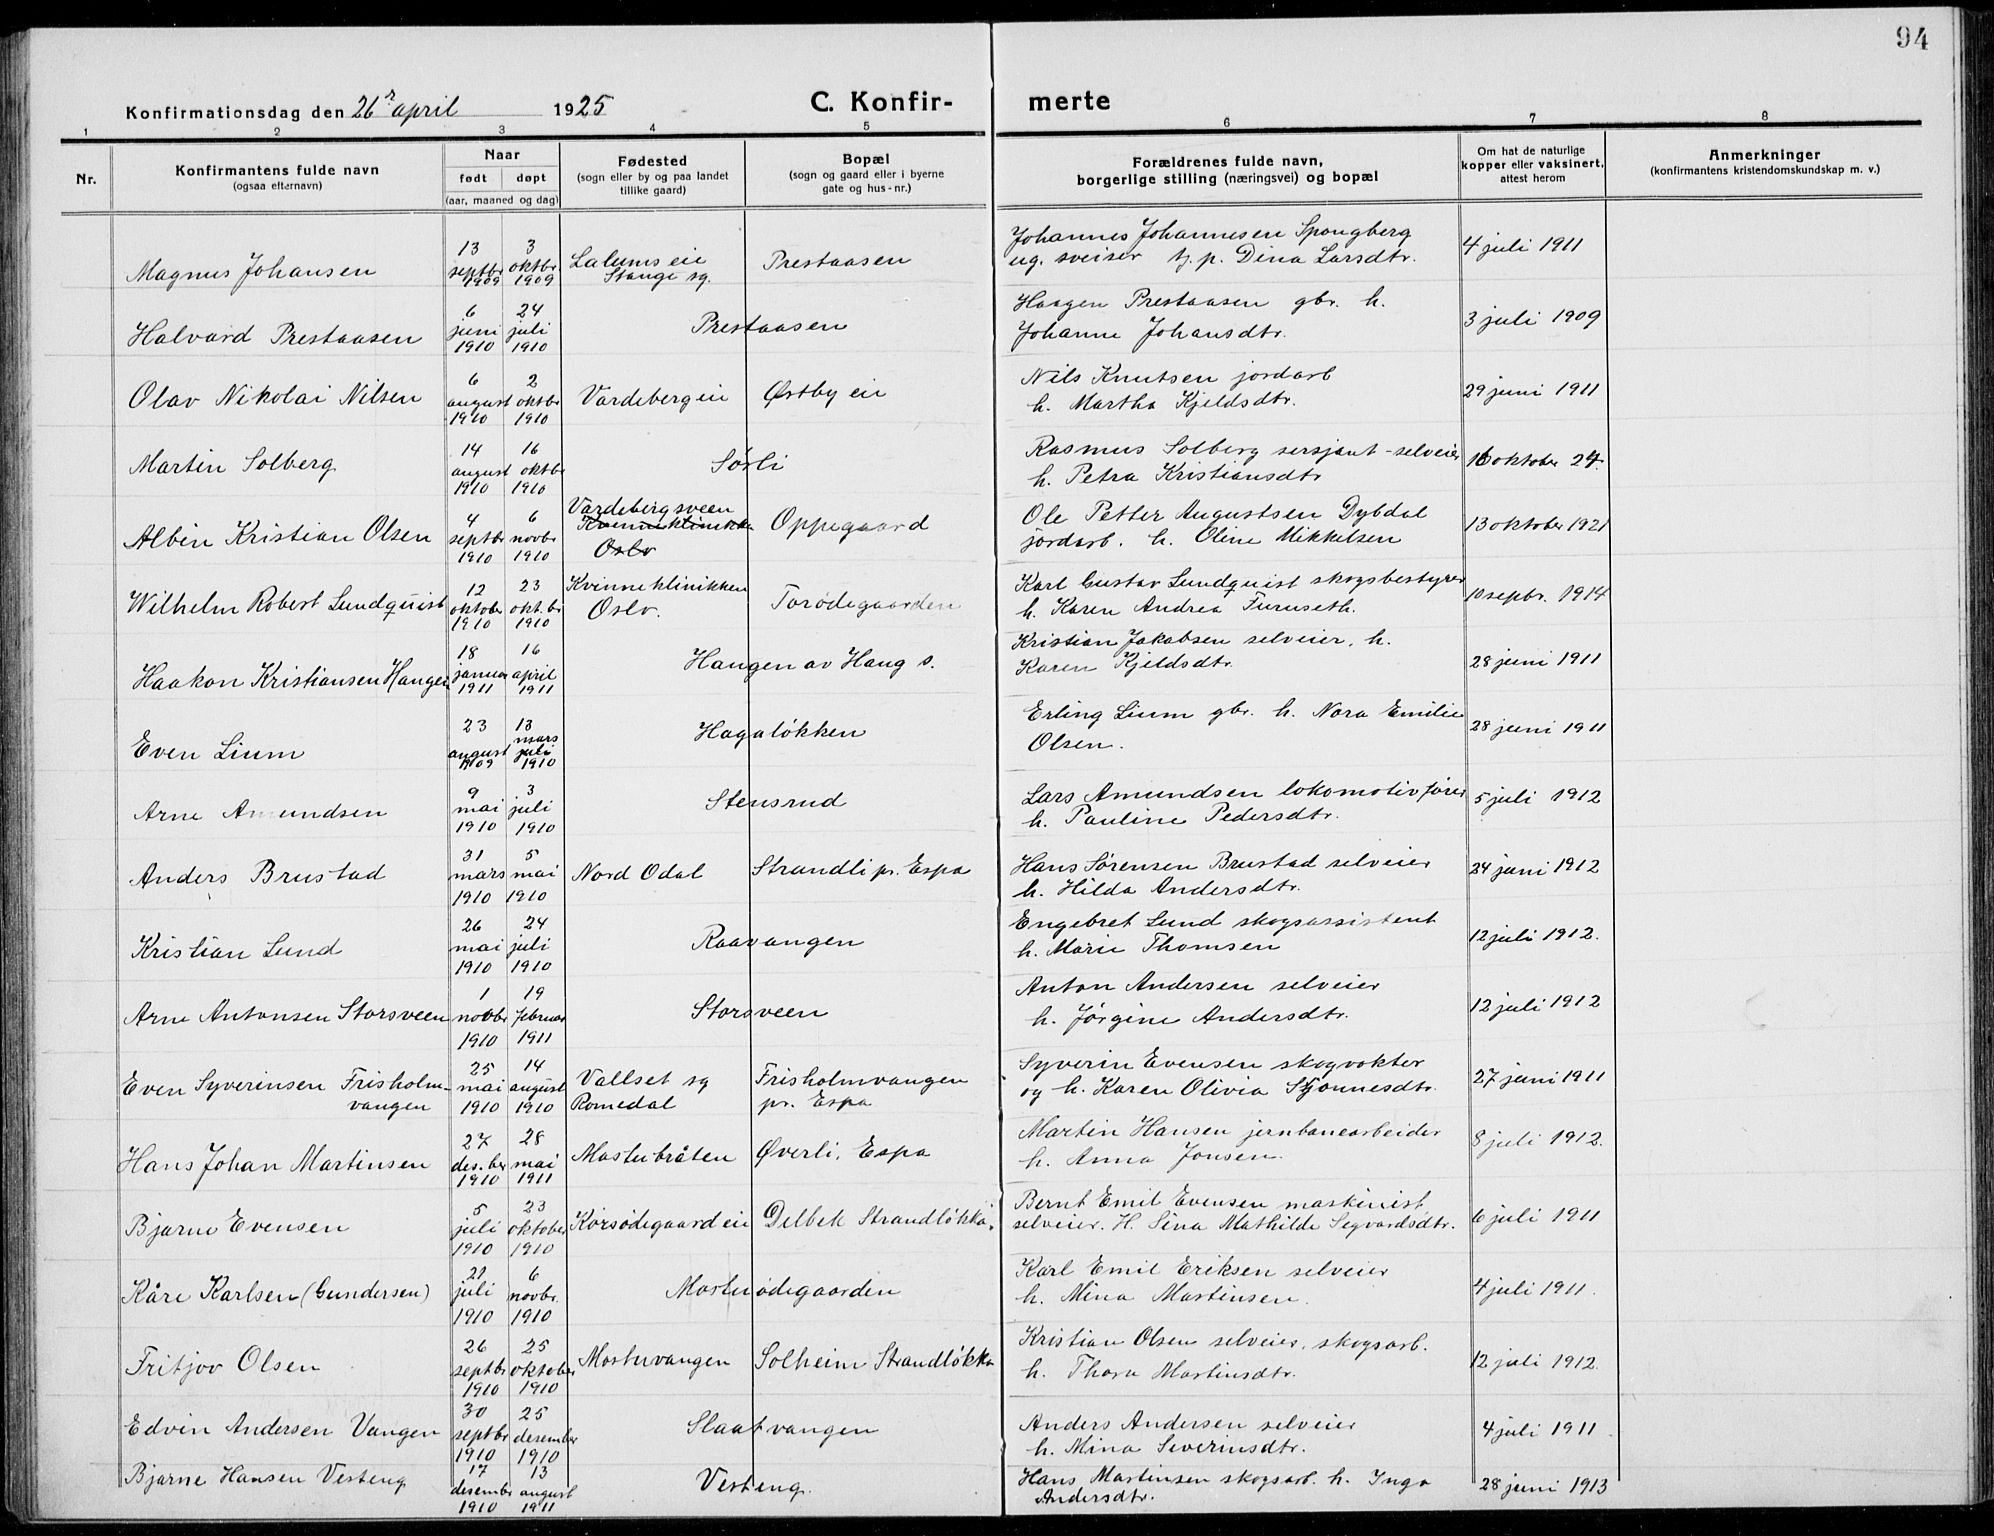 94
Konfirmationsdag den 26r april 1925
C. Konfir- merte
1 2 3 4 5 6 7 8
Nr.
Konfirmantens fulde navn
(ogsaa efternavn)
Naar
født døpt
(aar, maaned og dag)
Fødested
(sogn eller by og paa landet
tillike gaard)
Bopæl
(sogn og gaard eller i byerne
gate og hus-nr.)
Forældrenes fulde navn,
borgerlige stilling (næringsvei) og bopæl
Om hat de naturlige
kopper eller vaksinert,
attest herom
Anmerkninger
(konfirmantens kristendomskundskap m. v.)
Magnus Johansen
13 septbr 1909
3 oktbr 1909
Lalums eie
Stange sg.
Prestaasen
Johannes Johannesen Spongberg
ug. sveiser t.j. p. Dina Larsdtr.
4 juli 1911
Halvard Prestaasen
6 juni 1910
24 juli 1910
Prestaasen
Haagen Prestaasen gbr. h.
Johanne Johansdtr.
3 juli 1909
Olav Nikolai Nilsen
6 august 1910
2 oktbr 1910
Vardeberg eie
Østby eie
Nils Knutsen jordarb
h. Martha Kjeldsdtr.
29 juni 1911
Martin Solberg
14 august 1910
16 oktbr 1910
Sørli
Rasmus Solberg sersjant-selveier
h. Petra Kristiansdtr
16 oktober 24.
Albin Kristian Olsen
4 septbr 1910
6 novbr 1910
Vardebergsveen
Kvinneklinikken
Oslo
Oppegaard
Ole Petter Augustsen Dybdal
jordarb. h. Oline Mikkelsen
13 oktober 1921
Wilhelm Robert Lundquist
12 oktober 1910
23 okt.br 1910
Kvinneklinikken
Oslo.
Torødegaarden
Karl Gustav Lundquist skogsbestyrer
h. Karen Andrea Furuseth.
10 sepbr. 1914
Haakon Kristiansen Haugen
18 januar 1911
16 april 1911
Haugen av Haug s.
Kristian Jakobsen selveier, h.
Karen Kjeldsdtr.
28 juni 1911
Even Lium
23 august 1909
13 mars juli 1910
Hagaløkken
Erling Lium gbr. h. Nora Emilie
Olsen.
28 juni 1911
Arne Amundsen
9 mai 1910
3 juli 1910
Stensrud
Lars Amundsen lokomotivfører
h. Pauline Pedersdtr.
5 juli 1912
Anders Brustad
31 mars 1910
5 mai 1910
Nord Odal
Strandli pr. Espa
Hans Sørensen Brustad selveier
h. Hilda Andersdtr.
24 juni 1912
Kristian Lund
26 mai 1910
24 juli 1910
Raavangen
Engebret Lund skogsassistent
h. Marie Thomsen
12 juli 1912.
Arne Antonsen Storsveen
1 novbr 1910
19 februar 1911
Storsveen
Anton Andersen selveier
h. Jørgine Andersdtr.
12 juli 1912
Even Syverinsen Frisholm-
vangen
25 mai 1910
14 august 1910
Vallset sg
Romedal
Frisholmvangen
pr. Espa
Syverin Evensen skogvokter
og h. Karen Olivia
27 juni 1911
Hans Johan Martinsen
27 des.ber 1910
28 mai 1911
Mosterbråten
Øverli, Espa
Martin Hansen jernbanearbeider
h. Anna Jonsen.
8 juli 1912.
Bjarne Evensen
5 juli 1910
23 oktober 1910
Korsødegaard eie
Delbek Strandløkka.
Bernt Emil Evensen maskinist
selveier. H. Lina Mathilde Segvardsdtr.
6 juli 1911
Kåre Karlsen (Gundersen)
21 juli 1910
6 novbr. 1910
Mosterødegaarden
Karl Emil Eriksen selveier
h. Mina Martinsen.
4 juli 1911.
Fritjov Olsen
26 septbr 1910
25 oktober 1910
Mostervangen
Solheim Strandløkka
Kristian Olsen selveier, skogsarb.
h. Thora Martinsdtr.
12 juli 1912.
Edvin Andersen Vangen
30 septbr 1910
25 desember 1910
Slaatvangen
Anders Andersen selveier
h. Mina Severinsdtr.
4 juli 1911
Bjarne Hansen Vesteng
17 desembr 1910
13 august 1911
Vesteng.
Hans Martinsen skogsarb. h. Inga
Andersdtr.
28 juni 1913